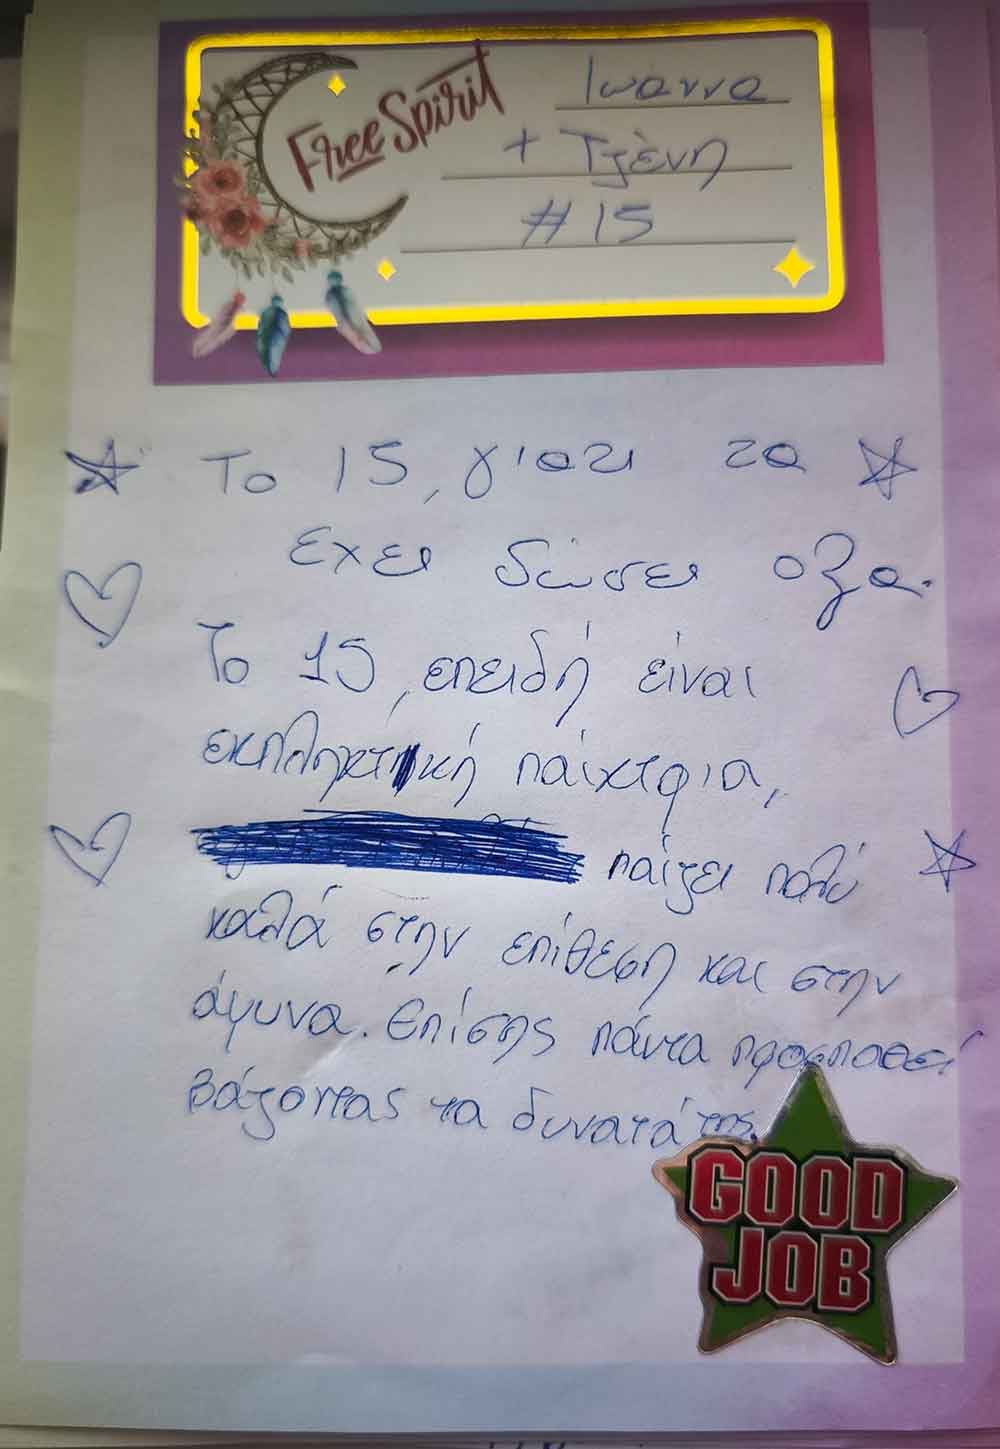 Free Spirit
Ιωαννα
+ Τζένη
# 15
Το 15, γιατι τα
έχει δώσει ολα.
Το 15, επειδή είναι
εκπληκτική παίχτρια,
παίζει πολύ
καλά στην επίθεση και στην
άμυνα. Επίσης πάντα προσπαθεί
βάζοντας τα δυνατά της.
GOOD
JOB